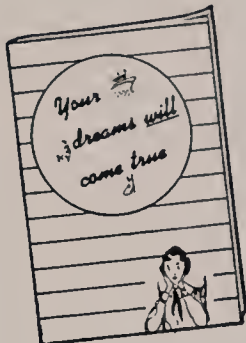 Your
dreams will
come true